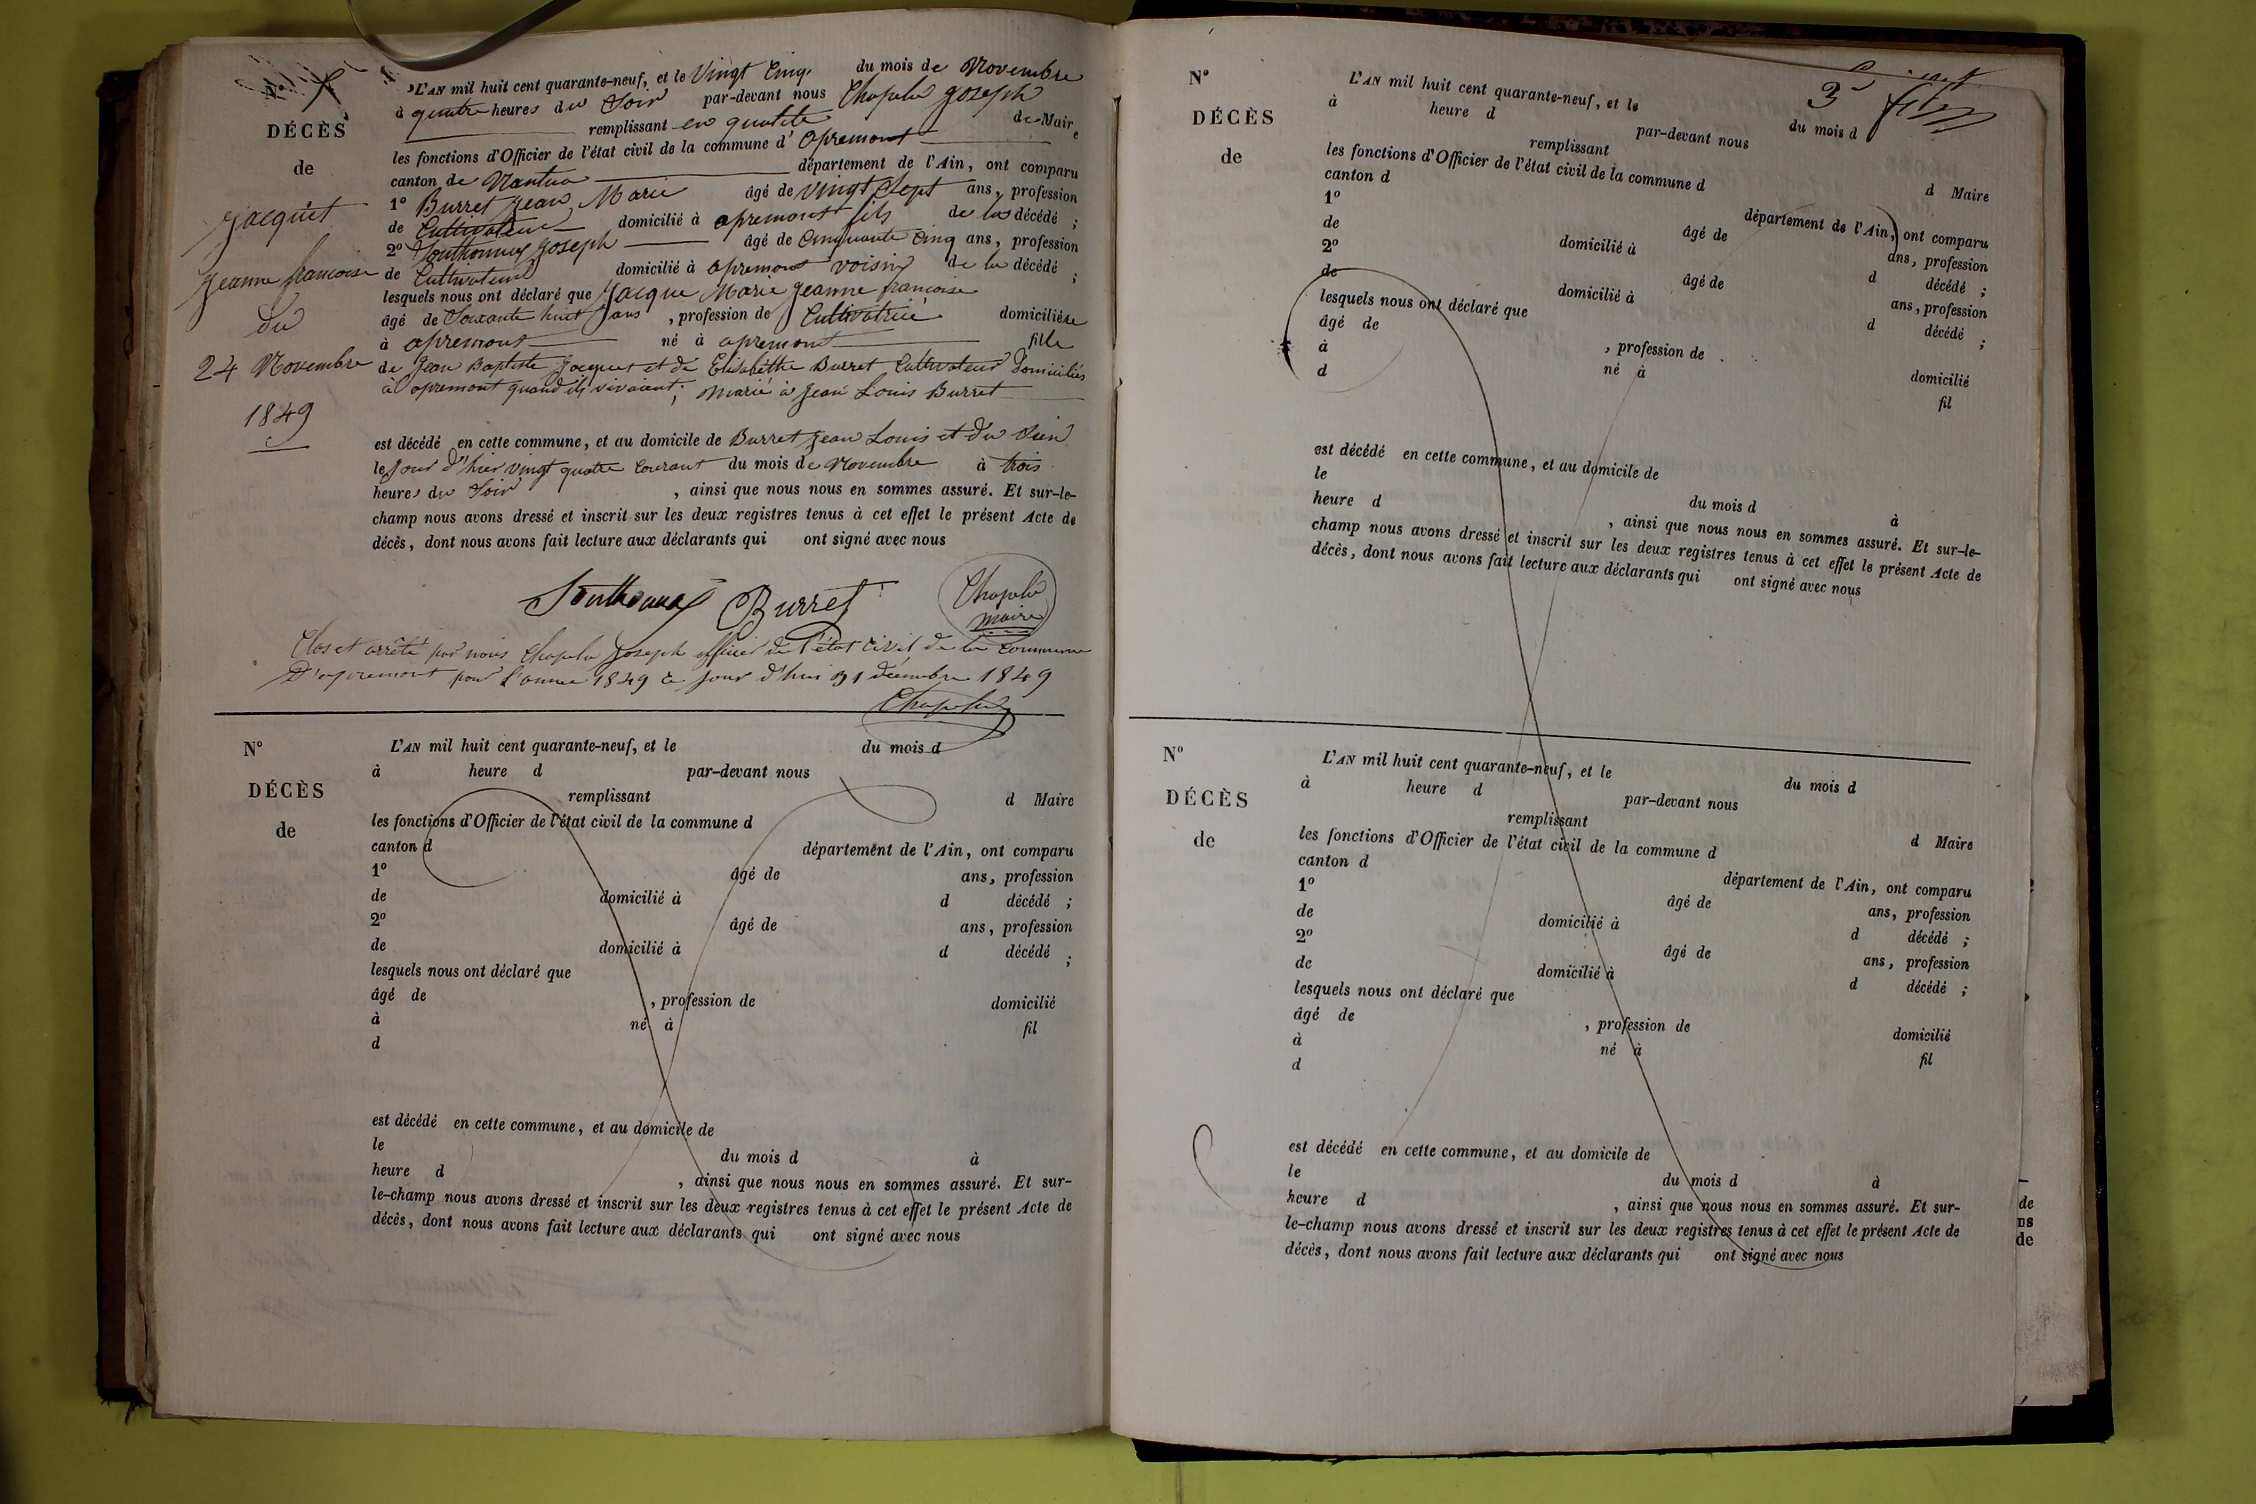 N°
DÉCÈS
de
Jacquet
Jeanne francoise
du
24 Novembre
1849
L'AN mil huit cent quarante-neuf, et le Vingt Cinq du mois de Novembre
à quatre heures du Soir par-devant nous Chapelu Joseph
remplissant en qualité de Maire
les fonctions d'Officier de l'état civil de la commune d'apremont
canton de Nantua département de l'Ain, ont comparu
1° Burret Jean Marie âgé de vingt Sept ans, profession
de Cultivateur domicilié à apremont fils de la décédé ;
2° Southonnax Joseph âgé de Cinquante Cinq ans, profession
de Cultivateur domicilié à apremont voisin de la décédé ;
lesquels nous ont déclaré que Jacque Marie Jeanne francoise
âgé de Soixante huit ans , profession de Cultivatrice domiciliée
à apremont né à apremont fille
de Jean Baptiste Jacquet et de Elisabethe Burret Cultivateur Domiciliés
à apremont quand ils vivaient; Marié à Jean Louis Burret
est décédé en cette commune, et au domicile de Burret Jean Louis et du Sien
le Jour d'hier vingt quatre Courant du mois de Novembre à trois
heures du Soir , ainsi que nous nous en sommes assuré. Et sur-le-
champ nous avons dressé et inscrit sur les deux registres tenus à cet effet le présent Acte de
décès, dont nous avons fait lecture aux déclarants qui ont signé avec nous
Southonnax Burret Chapelu
maire
Clos et arrêté par nous Chapelu Joseph officier de l'état civil de la Commune
D'apremont pour l'année 1849 ce jour d'hui 31 décembre 1849
Chapelu
N°
DÉCÈS
de
L'AN mil huit cent quarante-neuf, et le du mois d
à heure d par-devant nous
remplissant d Maire
les fonctions d'Officier de l'état civil de la commune d
canton d département de l'Ain, ont comparu
1° âgé de ans, profession
de domicilié à d décédé ;
2° âgé de ans, profession
de domicilié à d décédé ;
lesquels nous ont déclaré que
âgé de , profession de domicilié
à né à fil
d
est décédé en cette commune, et au domicile de
le du mois d à
heure d , ainsi que nous nous en sommes assuré. Et sur-
le-champ nous avons dressé et inscrit sur les deux registres tenus à cet effet le présent Acte de
décès, dont nous avons fait lecture aux déclarants qui ont signé avec nous
3
N°
DÉCÈS
de
L'AN mil huit cent quarante-neuf, et le du mois d
à heure d par-devant nous
remplissant d Maire
les fonctions d'Officier de l'état civil de la commune d
canton d département de l'Ain, ont comparu
1° âgé de ans, profession
de domicilié à d décédé ;
2° âgé de ans, profession
de domicilié à d décédé ;
lesquels nous ont déclaré que
âgé de , profession de domicilié
à né à fil
d
est décédé en cette commune, et au domicile de
le du mois d à
heure d , ainsi que nous nous en sommes assuré. Et sur-le-
champ nous avons dressé et inscrit sur les deux registres tenus à cet effet le présent Acte de
décès, dont nous avons fait lecture aux déclarants qui ont signé avec nous
N°
DÉCÈS
de
L'AN mil huit cent quarante-neuf, et le du mois d
à heure d par-devant nous
remplissant d Maire
les fonctions d'Officier de l'état civil de la commune d
canton d département de l'Ain, ont comparu
1° âgé de ans, profession
de domicilié à d décédé ;
2° âgé de ans, profession
de domicilié à d décédé ;
lesquels nous ont déclaré que
âgé de , profession de domicilié
à né à fil
d
est décédé en cette commune, et au domicile de
le du mois d à
heure d , ainsi que nous nous en sommes assuré. Et sur-
le-champ nous avons dressé et inscrit sur les deux registres tenus à cet effet le présent Acte de
décès, dont nous avons fait lecture aux déclarants qui ont signé avec nous
de
ns
de